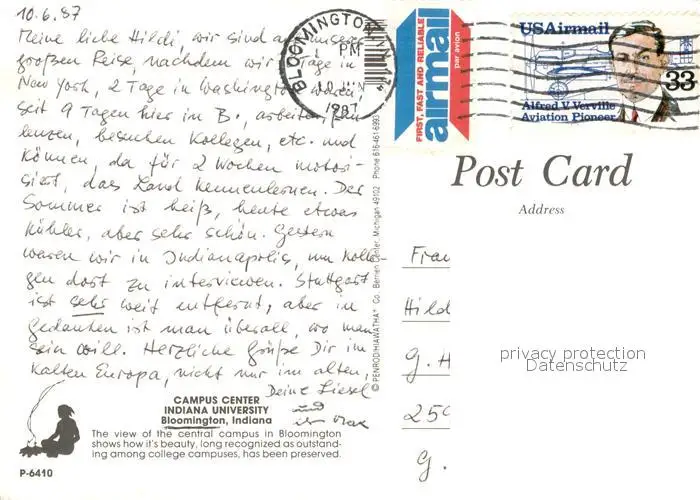 10.6.87
Meine liebe Hildi, wir sind auf unserer
großen Reise, nachdem wir Tage in
New York, 2 Tage in Washington waren,
seit 9 Tagen hier in B., arbeiten, faulenzen,
besuchen Kollegen, etc. und
können, da für 2 Wochen motorisiert,
das Land kennenlernen. Der
Sommer ist heiß, heute etwas
kühler, aber sehr schön. Gestern
waren wir in Indianapolis, um Kolle-
gen dort zu interviewen. Stuttgart
ist sehr weit entfernt, aber in
Gedanken ist man überall, wo man
sein will. Herzliche Grüße Dir im
kalten Europa, nicht nur im alten.
Deine Liesel
und
CAMPUS CENTER
INDIANA UNIVERSITY
Bloomington, Indiana
The view of the central campus in Bloomington
shows how it's beauty, long recognized as outstand-
ing among college campuses, has been preserved.
P-6410
© PENROD/HIAWATHA Co. Berrien Center, Michigan 49102 Phone 616-461-6993
BLOOMINGTON, IN
PM
JUN
1987
FIRST, FAST AND RELIABLE
airmail
par avion
USAirmail
33
Alfred V. Verville
Aviation Pioneer
Post Card
Address
Frau
Hild
G. H
250
G.
privacy protection
Datenschutz